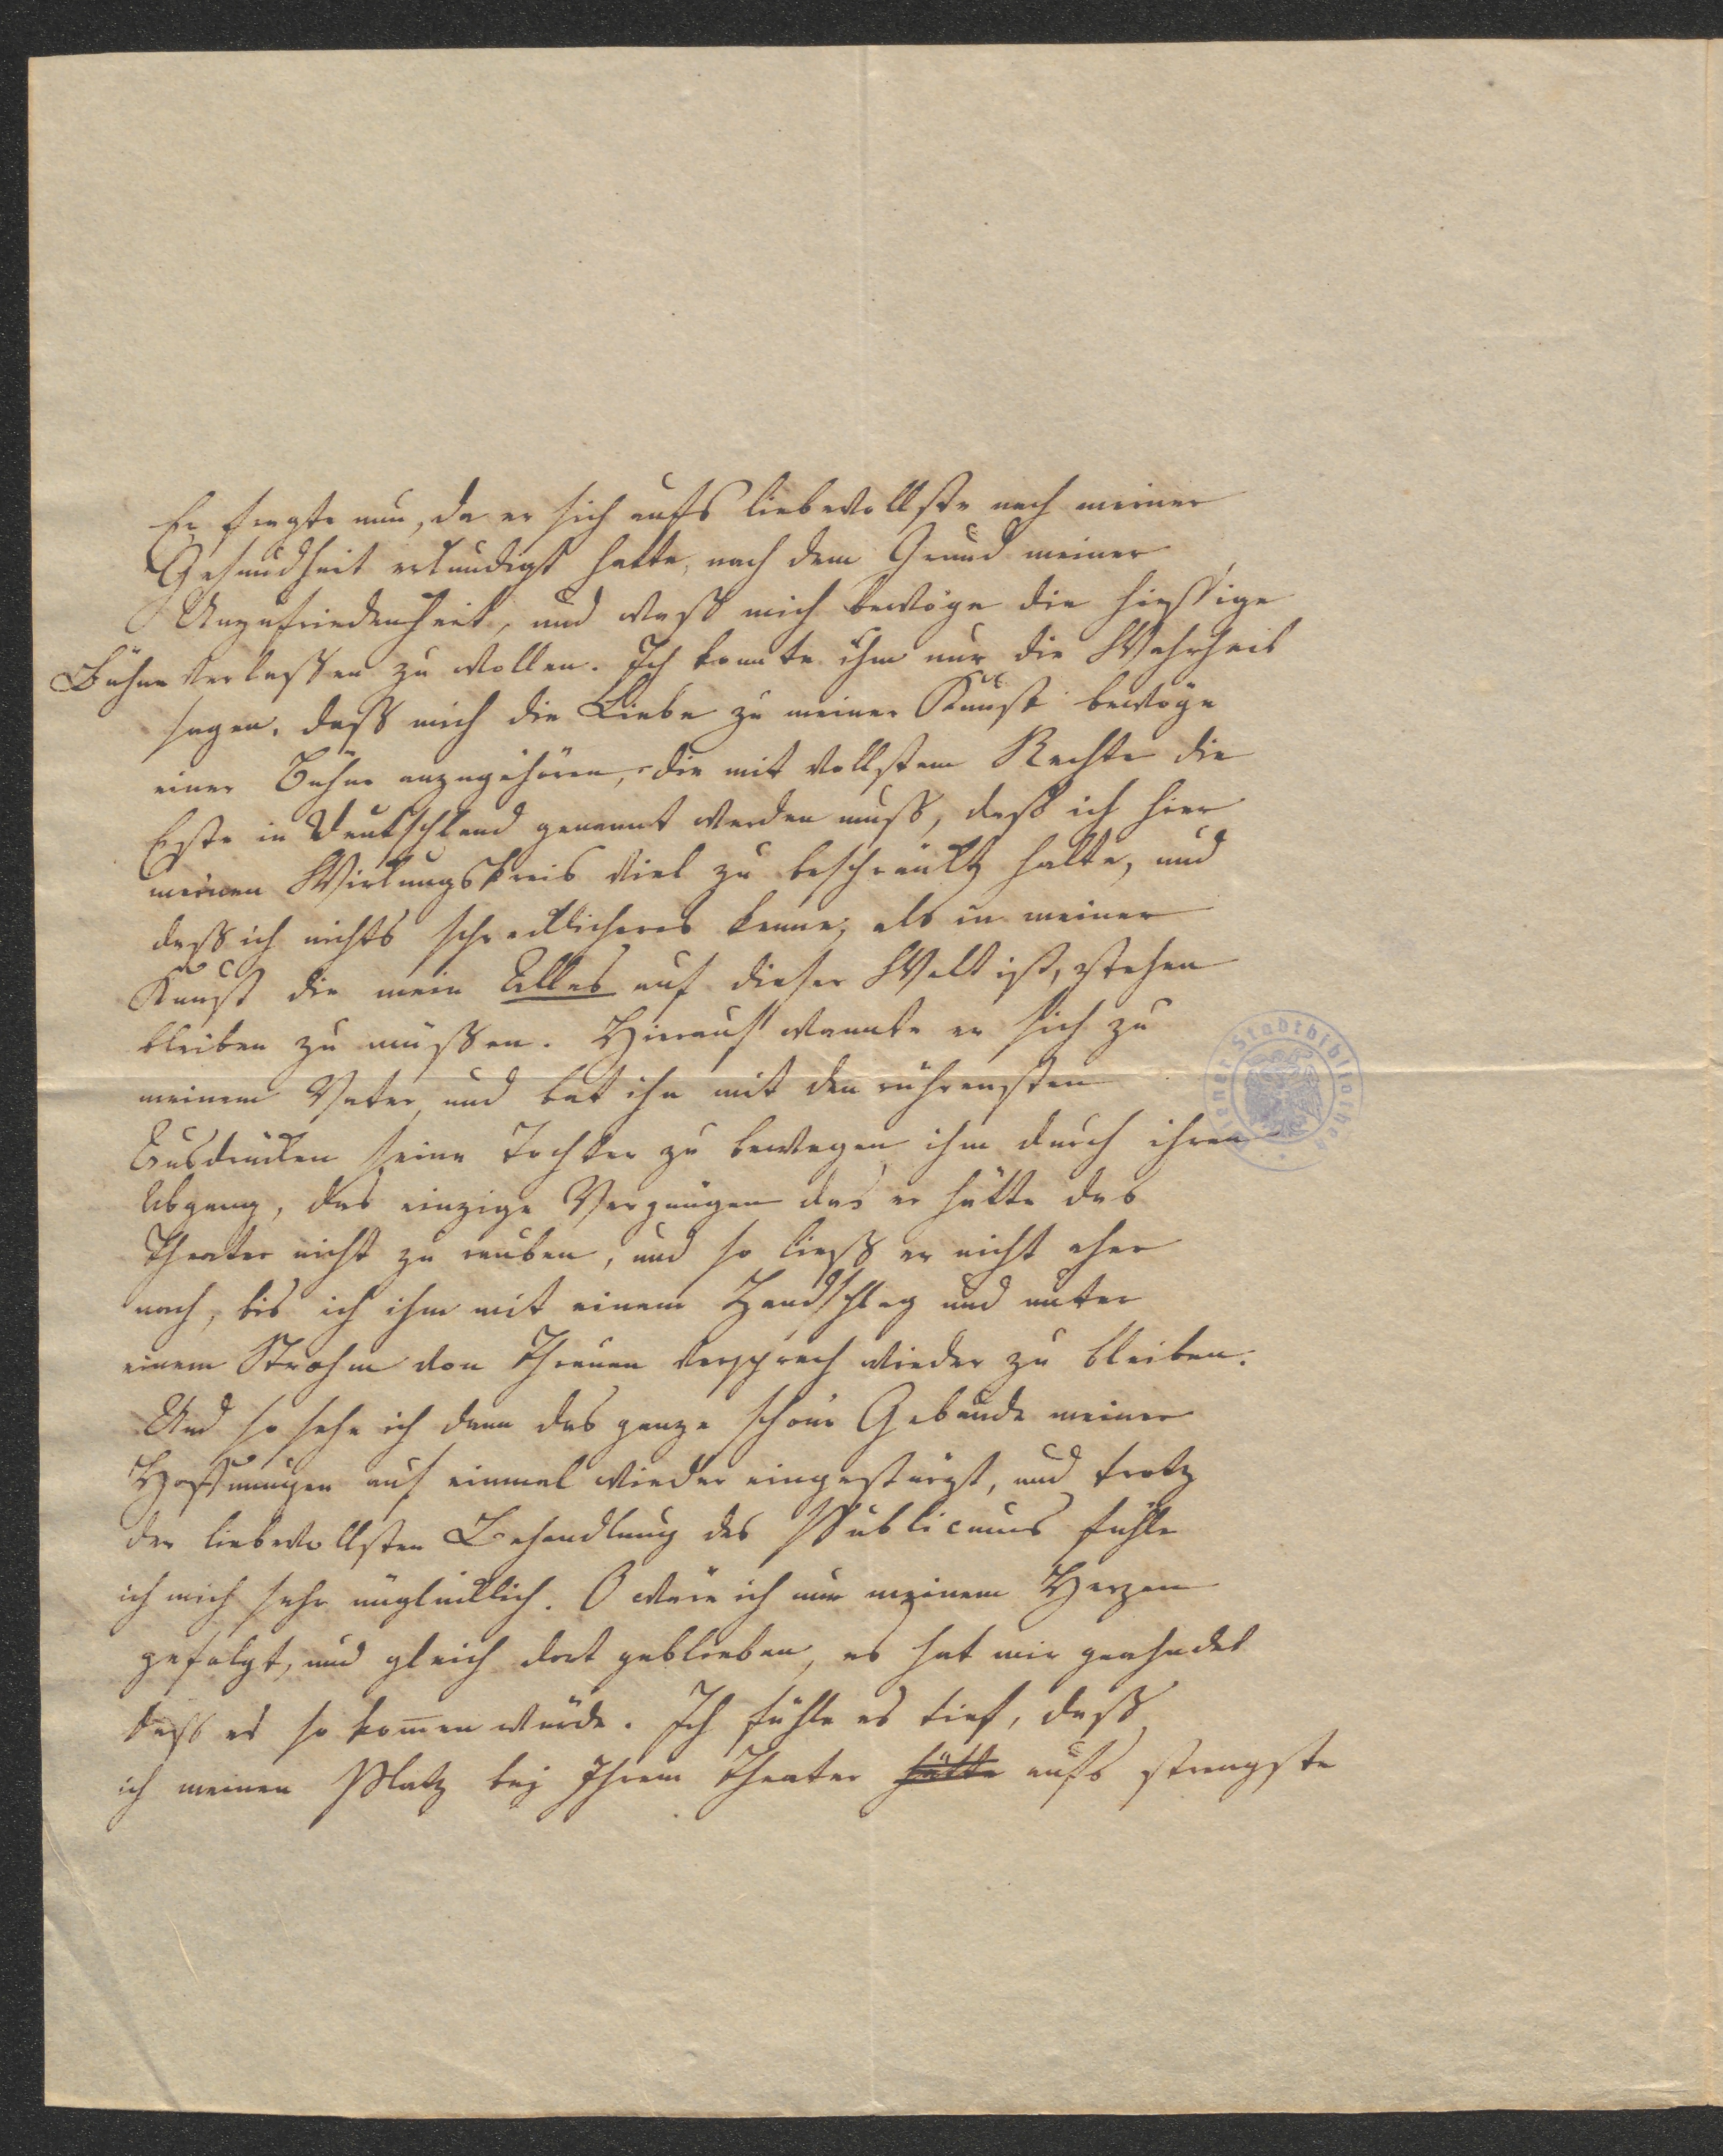 Er fragte nun, da er sich aufs liebevollste nach meiner
Gesundheit erkundigt hatte, nach dem Grund meiner
Unzufriedenheit, und waß mich bewöge die hiessige
Bühne verlassen zu wollen. Ich konnte ihm nur die Wahrheit
sagen, dass mich die Liebe zu meiner Kunst bewöge
einer Bühne anzugehören, die mit vollstem Rechte die
Erste in Deutschland genannt werden muss, dass ich hier
meinen Wirkungskreis viel zu beschränkt halte, und
dass ich nichts schrecklicheres kenne, als in meiner
Kunst die mein Alles auf dieser Welt ist, stehen
bleiben zu müssen. Hierauf wannte er sich zu
meinem Vater, und bat ihn mit den rührensten
Ausdrücken seine Tochter zu bewegen ihm durch ihren
Abgang, das einzige Vergnügen das er hätte das
Theater nicht zu rauben, und so liess er nicht eher
nach, bis ich ihm mit einem Handschlag und unter
einem Strohm von Thränen versprach wieder zu bleiben.
Und so sehe ich denn das ganze schöne Gebäude meiner
Hoffnungen auf einmal wieder eingestürzt, und trotz
der liebevollsten Behandlung des Publicums fühle
ich mich sehr unglücklich. O wäre ich nur meinem Herzen
gefolgt, und gleich dort geblieben, es hat mir geahndet
dass es so kom̅en würde. Ich fühle es tief, dass
ich meinen Platz bey Ihrem Theater hätte aufs strengste
Wiener Stadtbibliothek